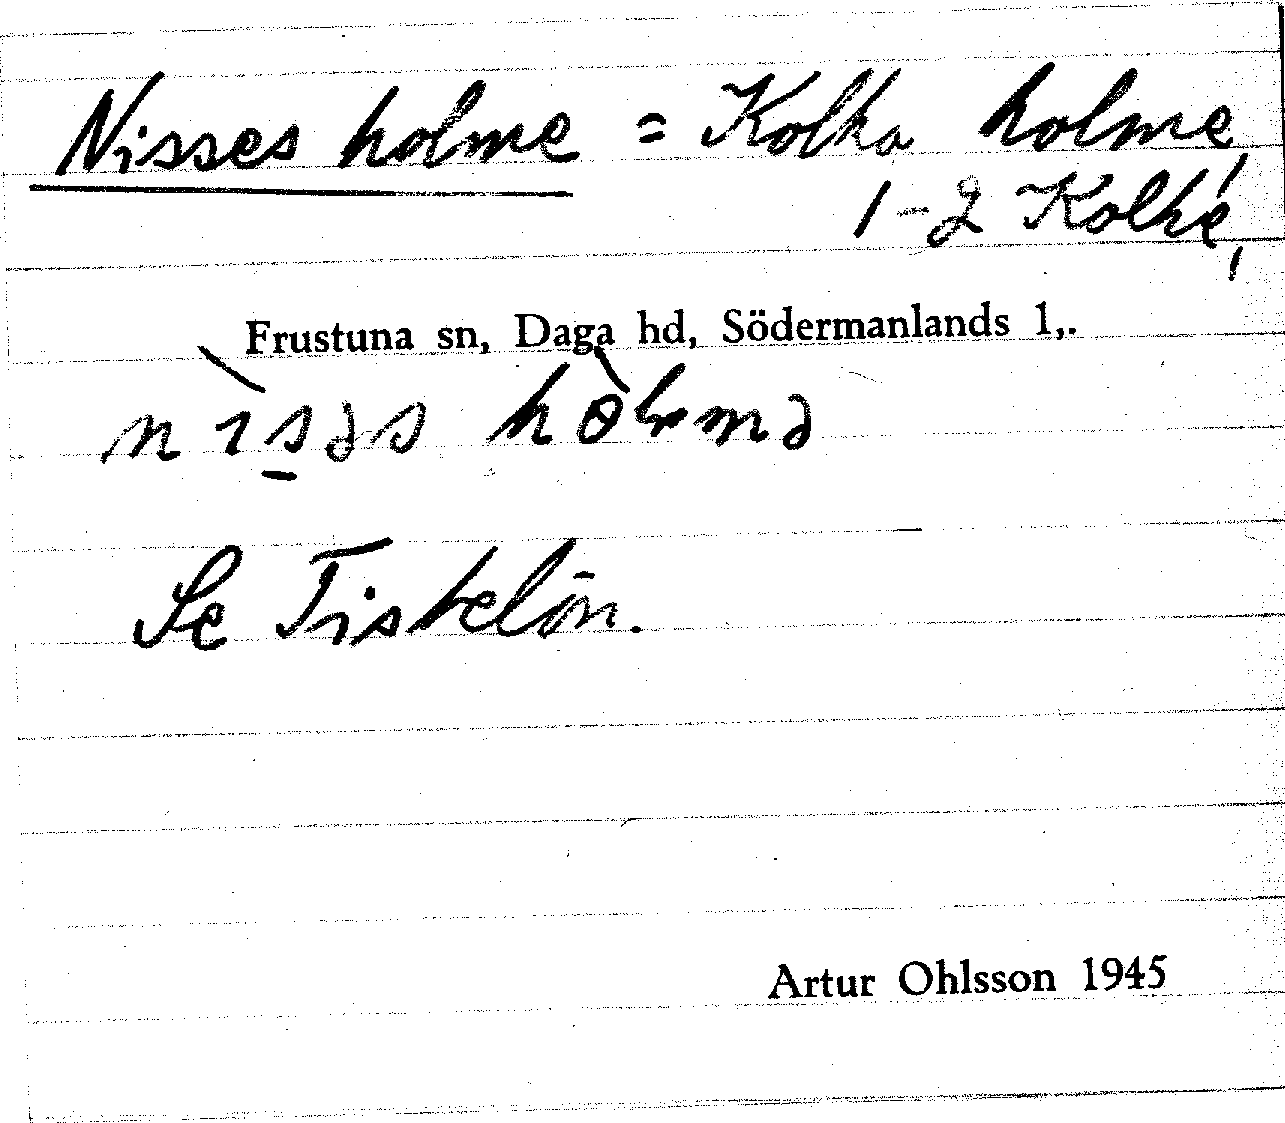 Nisses holme = Kolka holme,
1-2 Kolke,
Frustuna sn, Daga hd, Södermanlands l,.
Se Tistelön.
Artur Ohlsson 1945